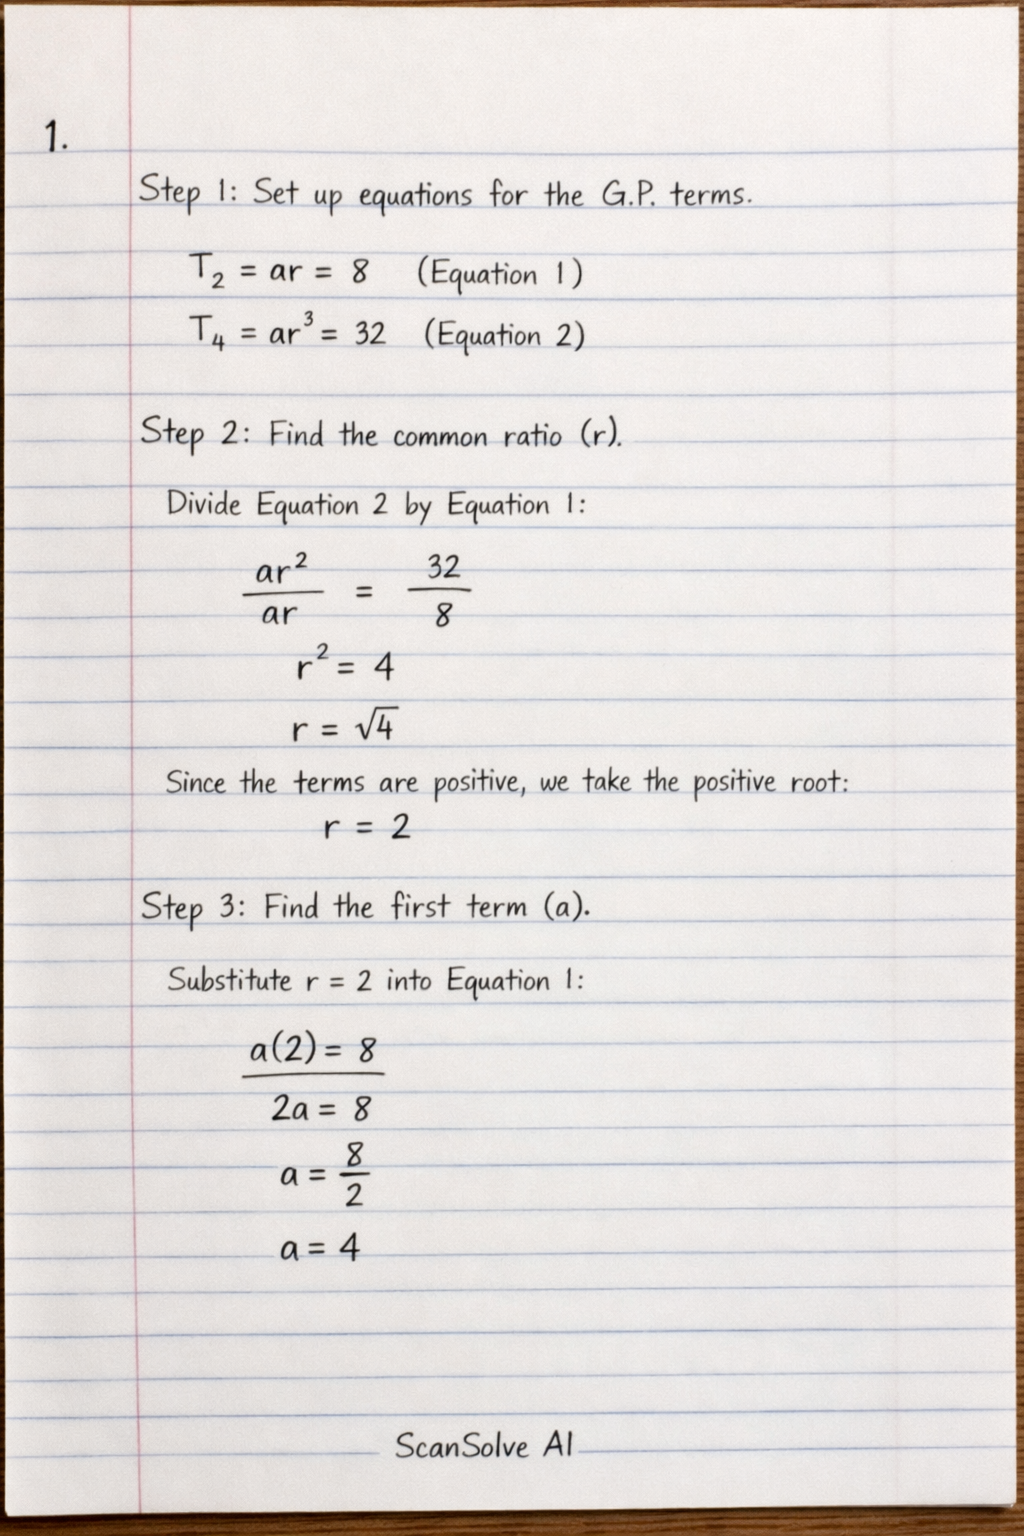 1.
Step 1: Set up equations for the G.P. terms.
T₂ = ar = 8 (Equation 1)
T₄ = ar³ = 32 (Equation 2)
Step 2: Find the common ratio (r).
Divide Equation 2 by Equation 1:
ar²/ar = 32/8
r² = 4
r = √4
Since the terms are positive, we take the positive root:
r = 2
Step 3: Find the first term (a).
Substitute r = 2 into Equation 1:
a(2) = 8
2a = 8
a = 8/2
a = 4
ScanSolve AI